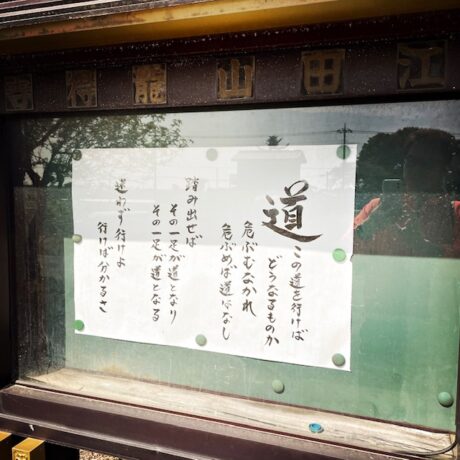 江田山龍得寺
道
この道を行けば
どうなるものか
危ぶむなかれ
危ぶめば道はなし
踏み出せば
その一足が道となり
その一足が道となる
迷わず行けよ
行けば分かるさ